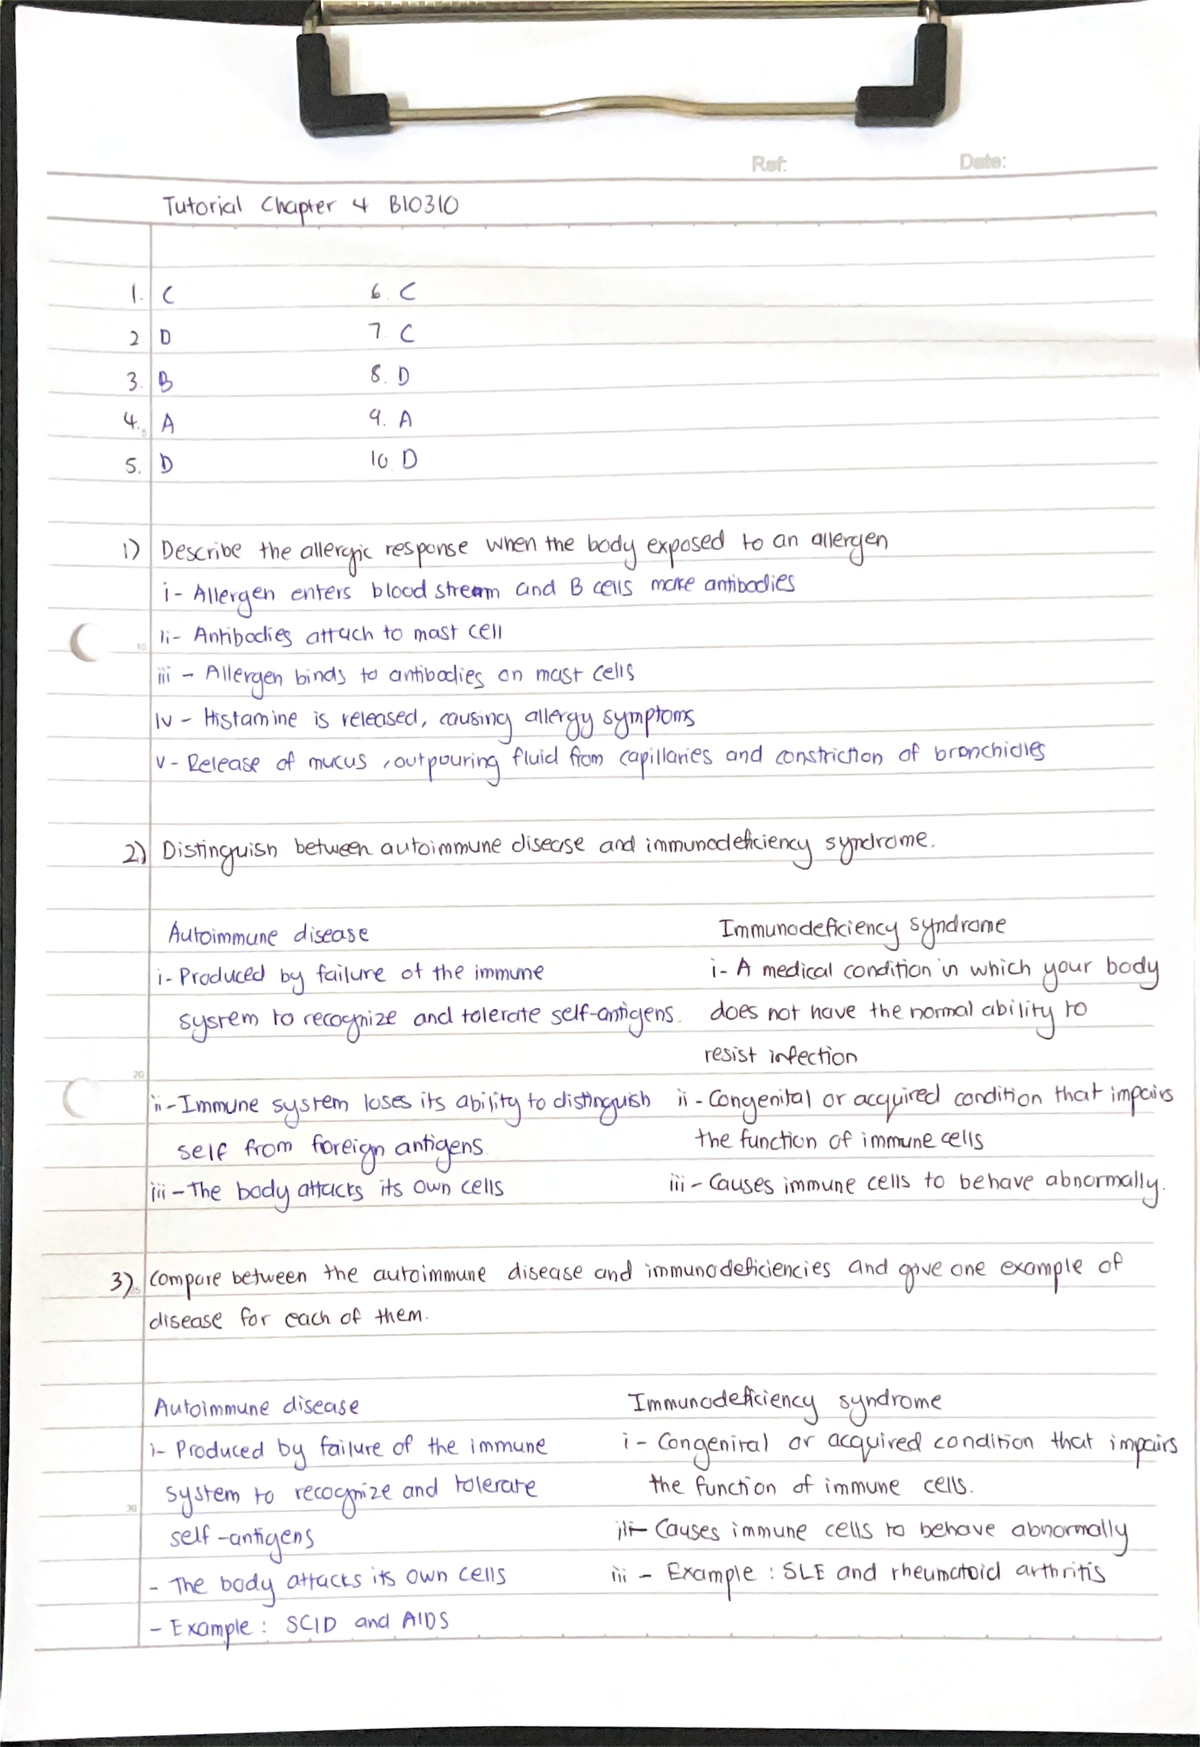 Ref:
Date:
Tutorial Chapter 4 BIO310
1. C
6. C
2 D
7 C
3. B
8. D
4. A
9. A
5. D
10 D
1) Describe the allergic response when the body exposed to an allergen
i- Allergen enters blood stream and B cells make antibodies
ii- Antibodies attach to mast cell
10
iii - Allergen binds to antibodies on mast cells
iv - Histamine is released, causing allergy symptoms
v - Release of mucus, outpouring fluid from capillaries and constriction of bronchioles
2) Distinguish between autoimmune disease and immunodeficiency syndrome.
Autoimmune disease
i- Produced by failure of the immune
system to recognize and tolerate self-antigens.
20
ii - Immune system loses its ability to distinguish
self from foreign antigens.
iii - The body attacks its own cells
Immunodeficiency syndrome
i- A medical condition in which your body
does not have the normal ability to
resist infection
ii - Congenital or acquired condition that impairs
the function of immune cells
iii - Causes immune cells to behave abnormally.
3) Compare between the autoimmune disease and immunodeficiencies and give one example of
disease for each of them.
Autoimmune disease
i- Produced by failure of the immune
system to recognize and tolerate
30
self-antigens
- The body attacks its own cells
- Example : SCID and AIDS
Immunodeficiency syndrome
i - Congenital or acquired condition that impairs
the function of immune cells.
ii- Causes immune cells to behave abnormally
iii - Example : SLE and rheumatoid arthritis